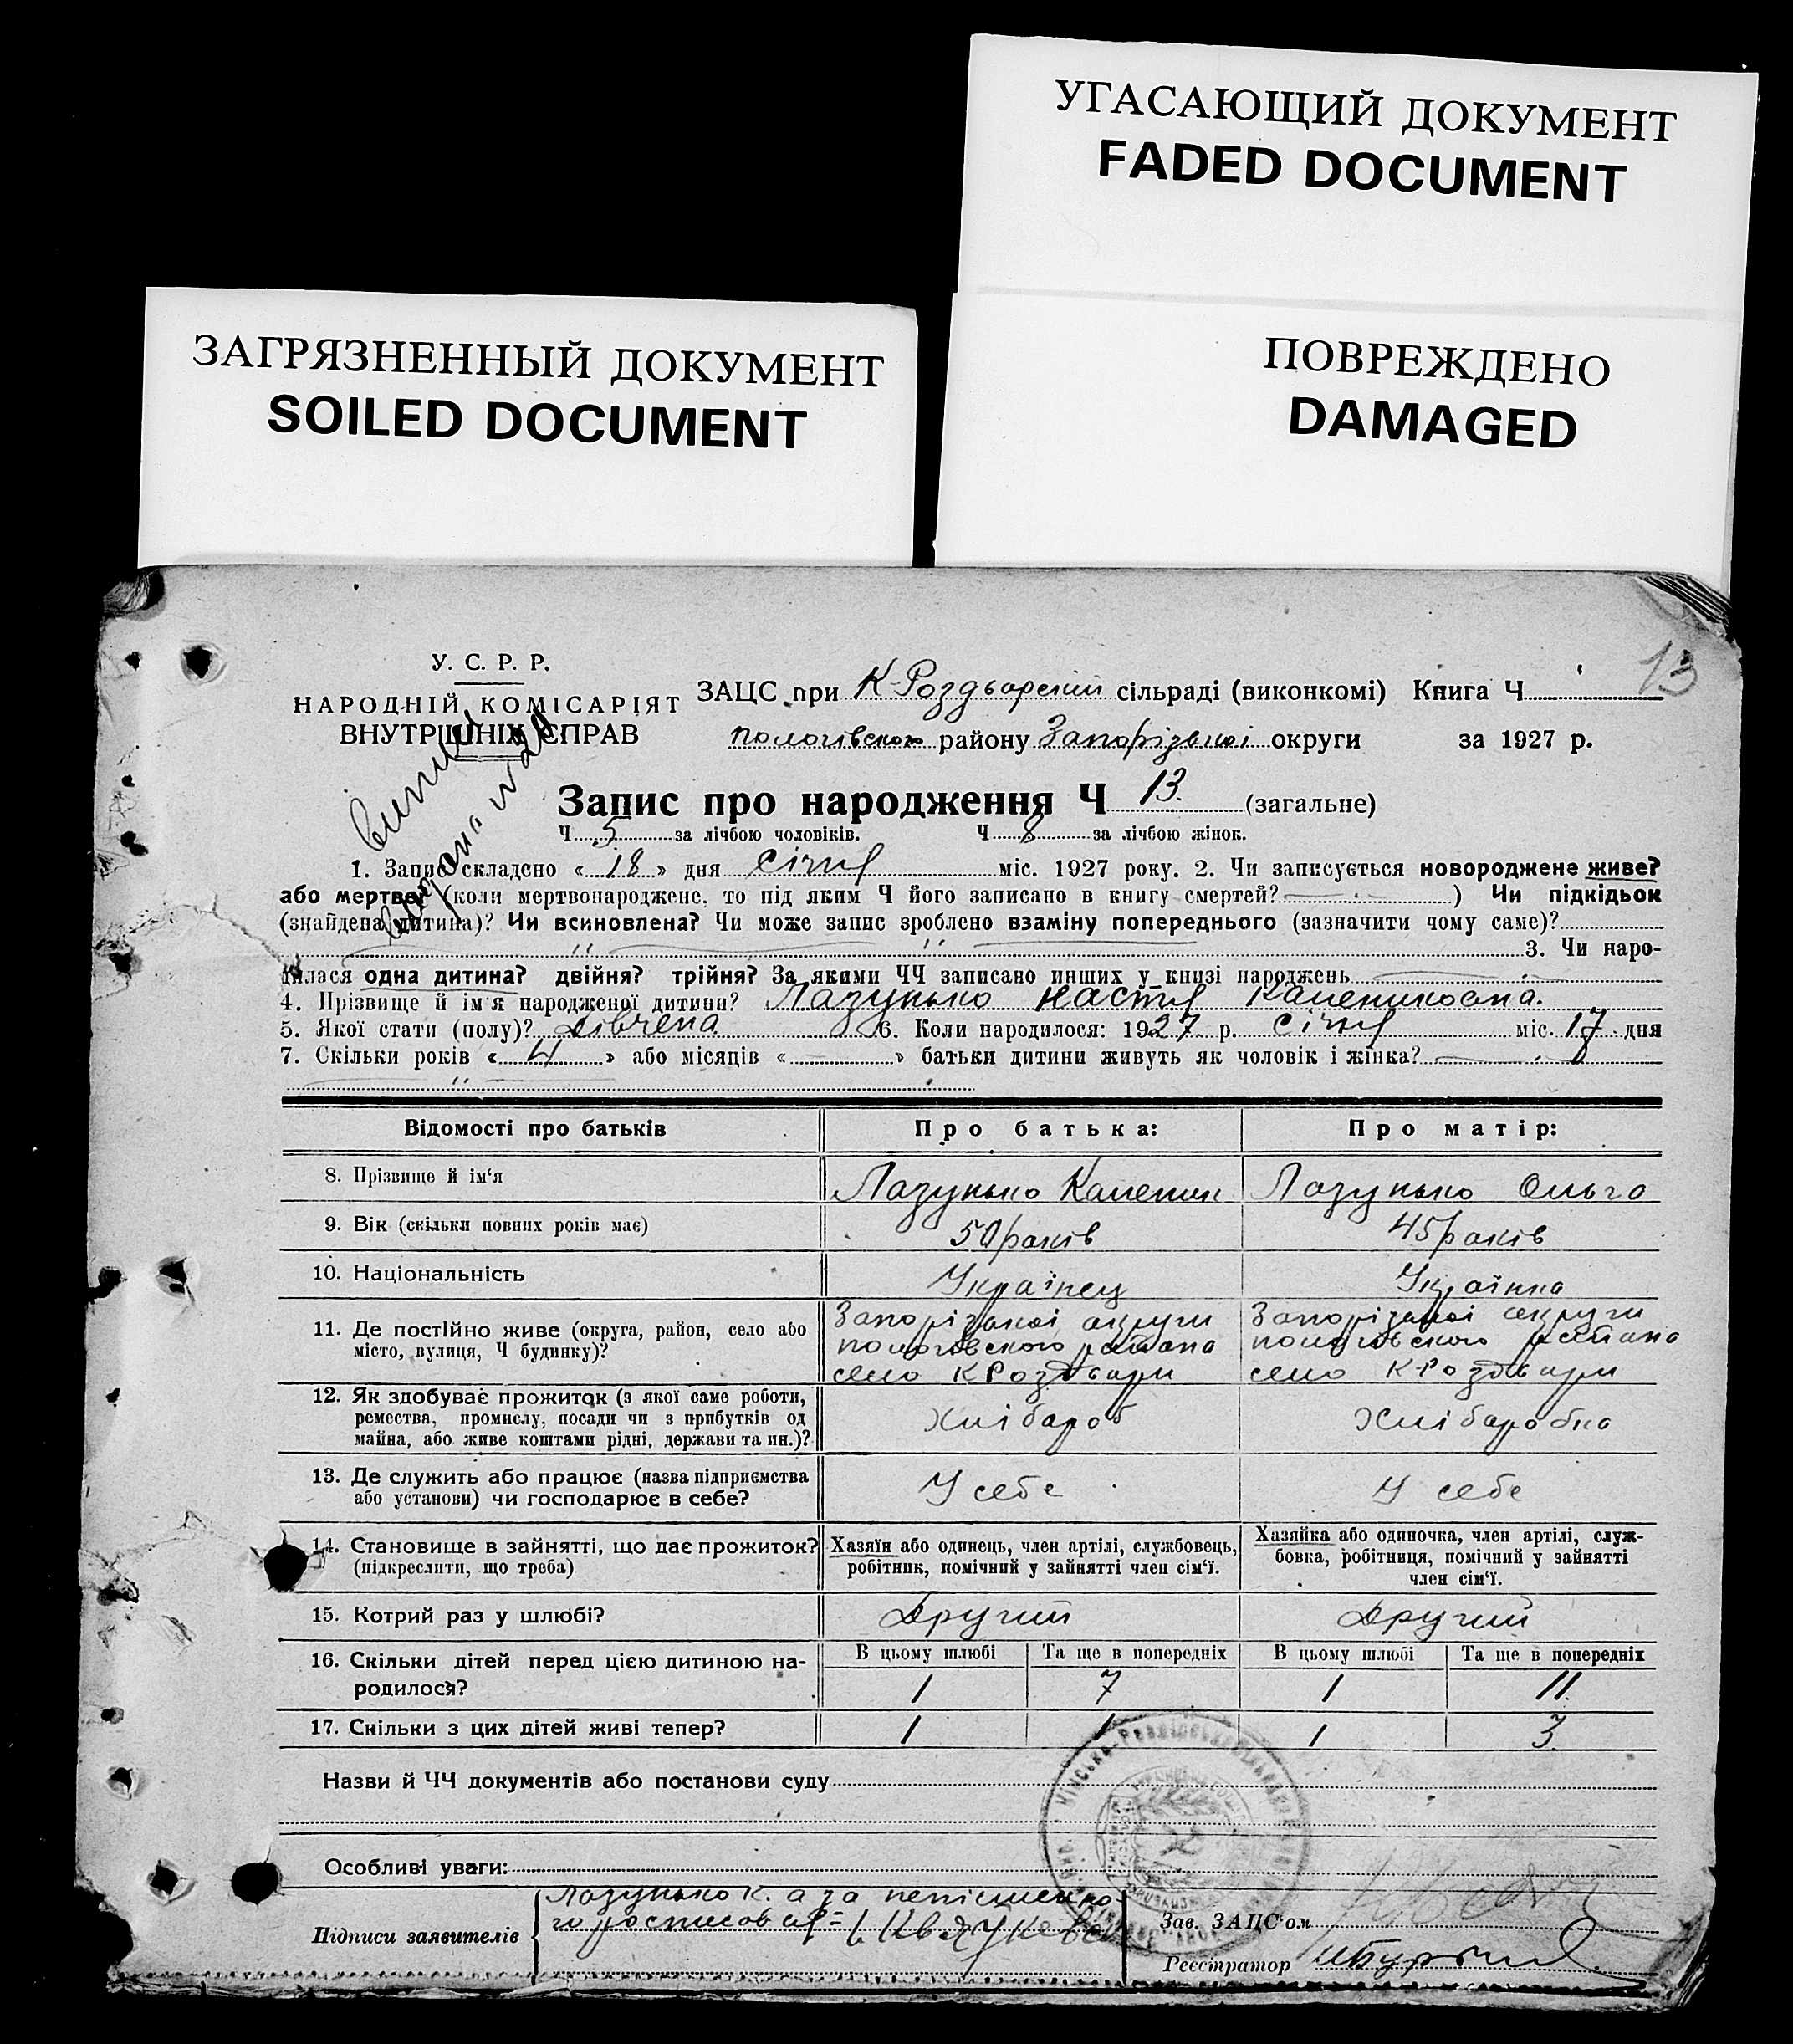 УГАСАЮЩИЙ ДОКУМЕНТ
FADED DOCUMENT
ЗАГРЯЗНЕННЫЙ ДОКУМЕНТ
SOILED DOCUMENT
ПОВРЕЖДЕНО
DAMAGED
13
У. С. Р. Р.
НАРОДНІЙ КОМІСАРІЯТ
ВНУТРІШНІХ СПРАВ
ЗАЦС при К-Роздорский сільраді (виконкомі) Книга Ч
пологівского району Запорізькоі округи за 1927 р.
Запис про народження Ч 13. (загальне)
Ч 5 за лічбою чоловіків. Ч 8 за лічбою жінок.
1. Запис складено « 18 » дня Січня міс. 1927 року. 2. Чи записується новороджене живе?
або мертве? (коли мертвонароджене, то під яким Ч його записано в книгу смертей? ) Чи підкідьок
(знайдена дитина)? Чи всиновлена? Чи може запис зроблено взаміну попереднього (зазначити чому саме)?
3. Чи наро-
дилася одна дитина? двійня? трійня? За якими ЧЧ записано инших у книзі народжень
4. Прізвище й ім'я народженої дитини? Лазунько Настя
5. Якої стати (полу)? Дівчена 6. Коли народилося: 1927 р. Січня міс. 17 дня
7. Скільки років « 4 » або місяців « » батьки дитини живуть як чоловік і жінка?
Відомості про батьків
Про батька:
Про матір:
8. Прізвище й ім'я
Лазунько
Лазунько Ольга
9. Вік (скільки повних років має)
50 раків
45 раків
10. Національність
Українец
Українка
11. Де постійно живе (округа, район, село або
місто, вулиця, Ч будинку)?
Запорізькоі округи
пологовского района
село К Роздори
Запорізькоі округи
пологовского района
село К-Роздори
12. Як здобуває прожиток (з якої саме роботи,
ремества, промислу, посади чи з прибутків од
майна, або живе коштами рідні, держави та ин.)?
Хлібароб
Хлібаробка
13. Де служить або працює (назва підприємства
або установи) чи господарює в себе?
У себе
У себе
14. Становище в зайнятті, що дає прожиток?
(підкреслити, що треба)
Хазяїн або одинець, член артілі, службовець,
робітник, помічний у зайнятті член сім'ї.
Хазяйка або одиночка, член артілі, служ-
бовка, робітниця, помічний у зайнятті
член сім'ї.
15. Котрий раз у шлюбі?
Другий
Другий
16. Скільки дітей перед цією дитиною на-
родилося?
В цьому шлюбі
Та ще в попередніх
В цьому шлюбі
Та ще в попередніх
1
7
1
11
17. Скільки з цих дітей живі тепер?
1
1
1
3
Назви й ЧЧ документів або постанови суду
Особливі уваги:
Підписи заявителів
Лазунько К. а за
Зав. ЗАЦС'ом
Реєстратор